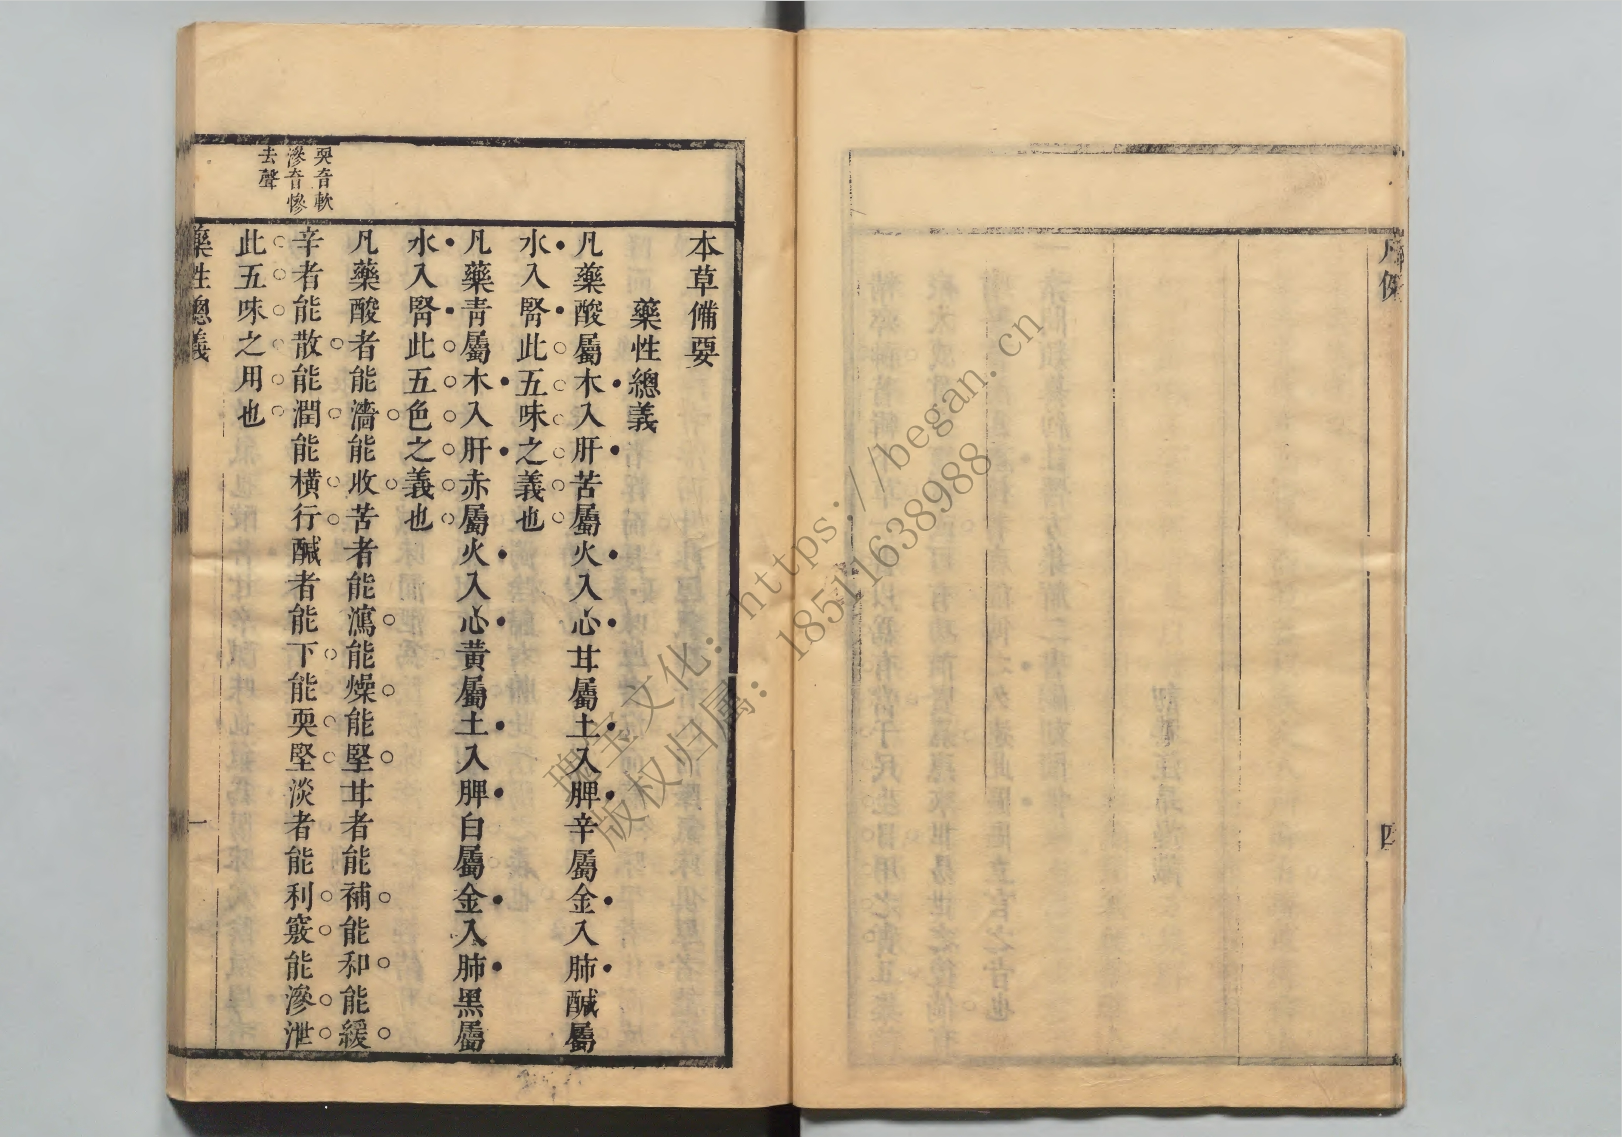 序例
四
本草備要
藥性總義
凡藥酸屬木入肝苦屬火入心甘屬土入脾辛屬金入肺鹹屬
水入腎此五味之義也
凡藥青屬木入肝赤屬火入心黃屬土入脾白屬金入肺黑屬
水入腎此五色之義也
凡藥酸者能濇能收苦者能瀉能燥能堅甘者能補能和能緩
辛者能散能潤能橫行鹹者能下能耎堅淡者能利竅能滲泄
此五味之用也
耎音軟
滲音慘
去聲
藥性總義
一
瑰宝文化：https://began.cn
版权归属：18511638988